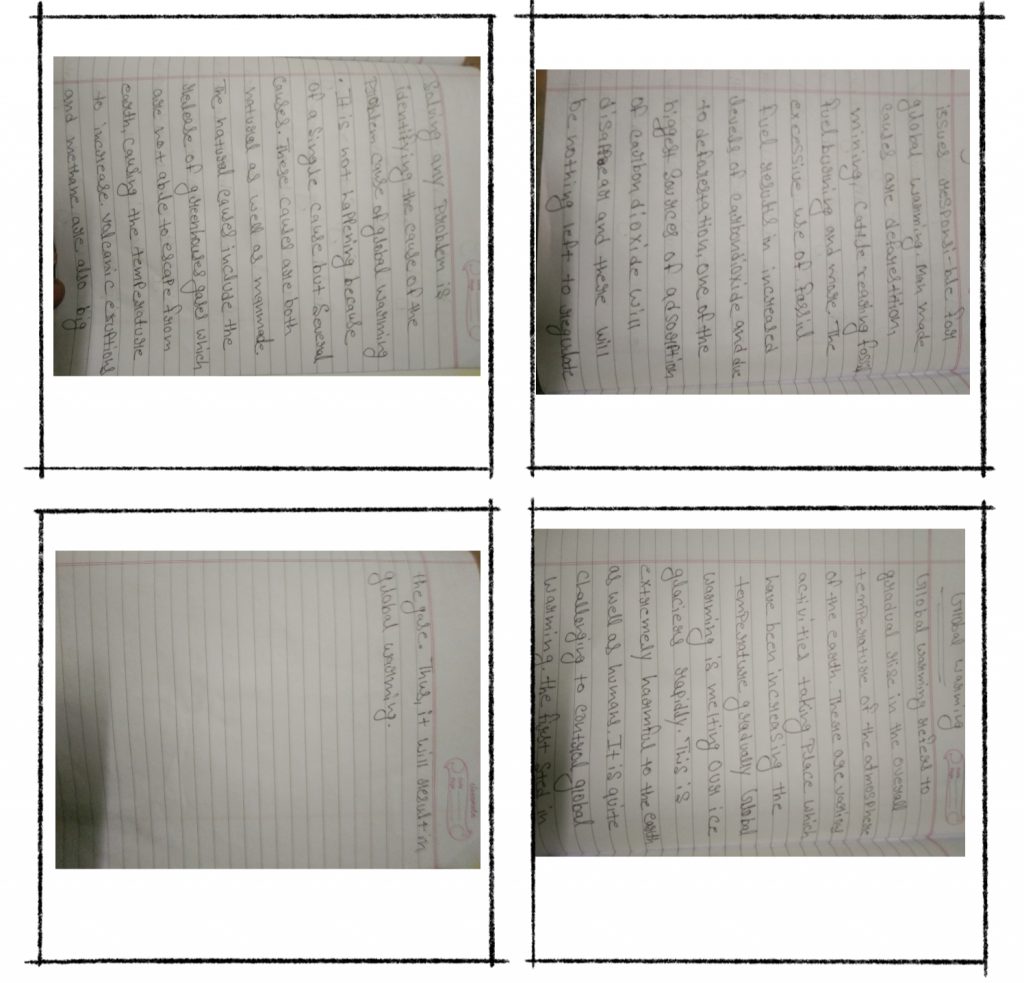 Global Warming
Global warming refers to
gradual rise in the overall
temperature of the atmosphere
of the earth. There are
activities taking Place which
have been increasing the
temperature gradually Global
warming is melting our ice
glaciers rapidly. This is
extremely harmful to the earth
as well as human. It is quite
challenging to control global
warming, the first in
Solving any Problem is
identifying the cause of the
Problem cause of global warming
. It is not happening because
of a single cause but several
causes. These causes are both
natural as well as manmade.
The natural causes include the
release of greenhouses gases which
are not able to escape from
earth, causing the temperature
to increase. volcanic eruptions
and methane are also big
issues responsi-ble for
global warming. man made
causes are
mining, cattle fossil
fuel burning and more. The
excessive use of
fuel results in increased
levels of carbondioxide and due
to one of the
biggest sources of adsorption
of carbon dioxide will
disappear and there will
be nothing left to regulate
the gase. Thus, it will result in
global warming.